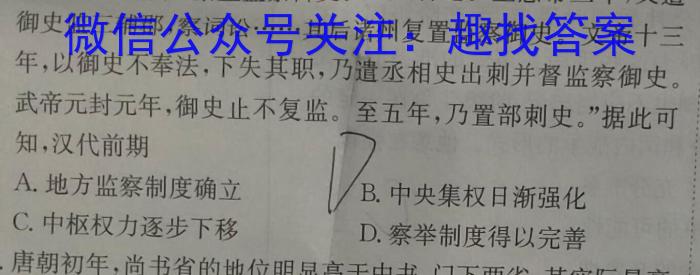 御史
微信公众号关注：趣找答案
三辅郡，察词讼
其后诸州复置
文
十三
年，以御史不奉法，下失其职，乃遣丞相史出刺并督监察御史。
武帝元封元年，御史止不复监。至五年，乃置部刺史。”据此可
知，汉代前期
A. 地方监察制度确立
B. 中央集权日渐强化
C. 中枢权力逐步下移
D. 察举制度得以完善
唐朝初年，尚书省的地位明显高于中书、门下两省，其